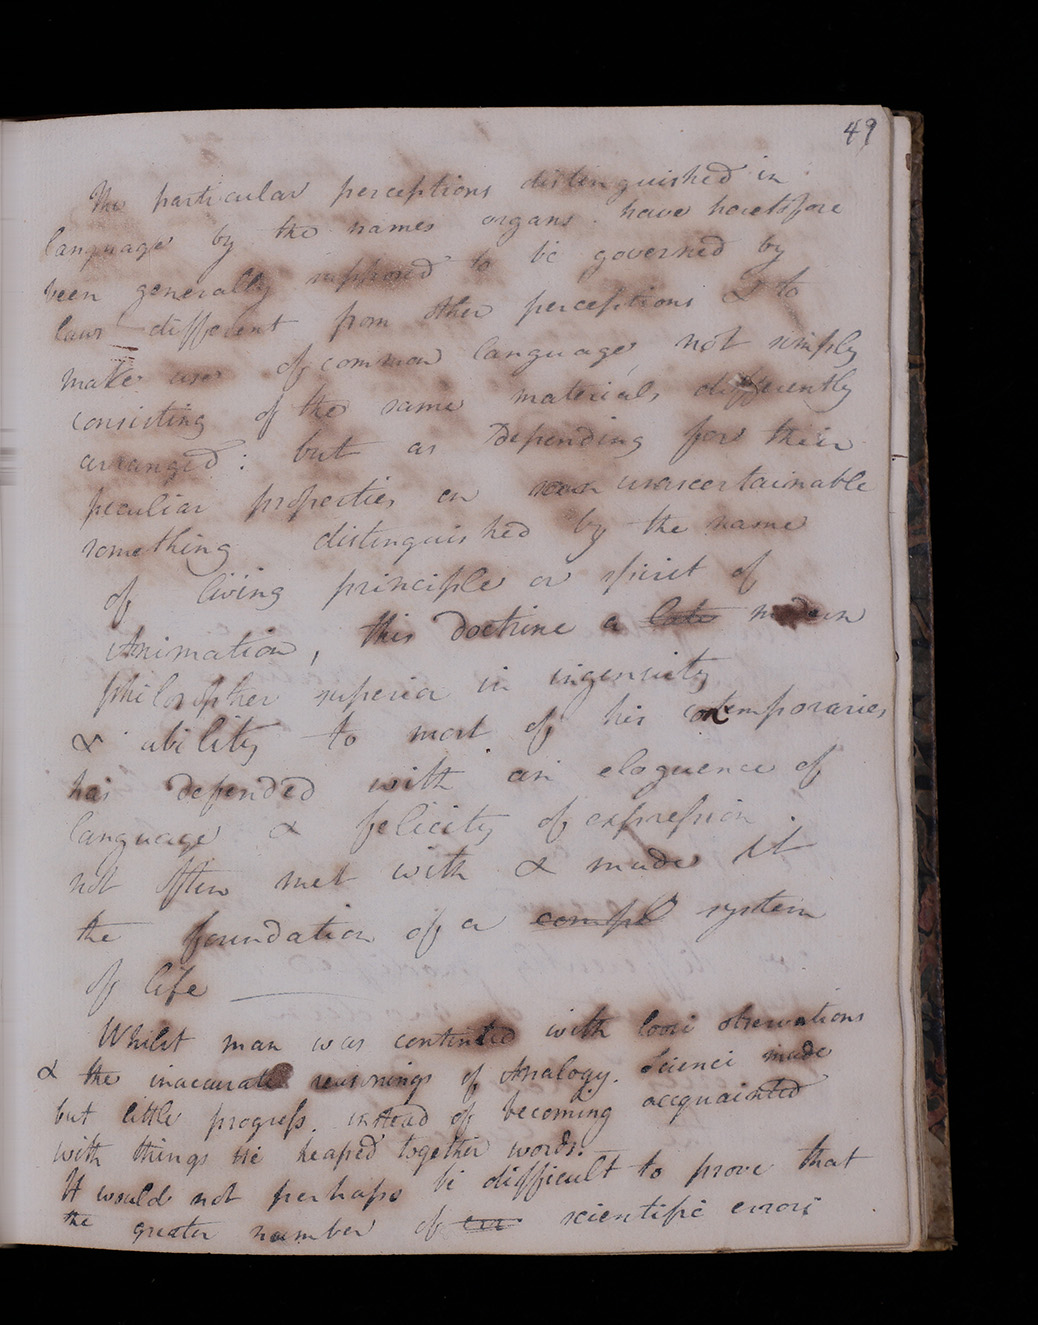 49
The particular perceptions distinguished in
language by the names organs. have heretofore
been generally supposed to be governed by
laws different from other perceptions & to
make use of common language, not simply
consisting of the same materials differently
arranged: but as depending for their
peculiar properties on unascertainable
something distinguished by the name
of living principle or spirit of
Animation, this doctrine a late modern
philosopher superior in ingenuity
& ability to most of his contemporaries
has defended with an eloquence of
language & felicity of expression
not often met with & made it
the foundation of a compl system
of life
Whilst man was contented with loose observations
& the inaccurate reasonings of Analogy. Science made
but little progress. instead of becoming accquainted
with things He heaped together words.
It would not perhaps be difficult to prove that
the greater number of err scientific errors